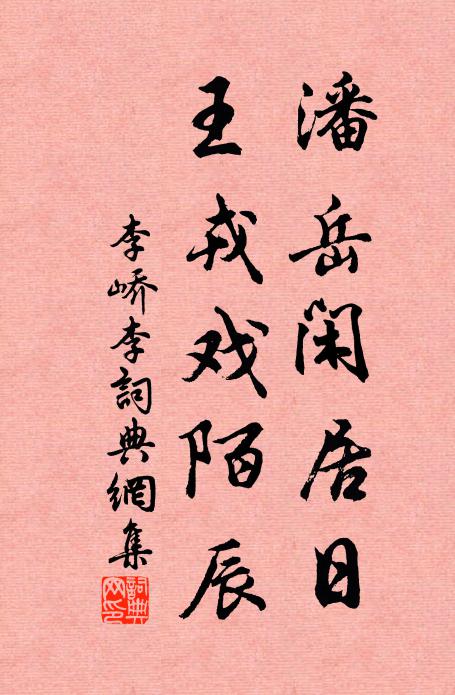 潘岳闲居日
王戎戏陌辰
李峤李詞典網集
詞典网印